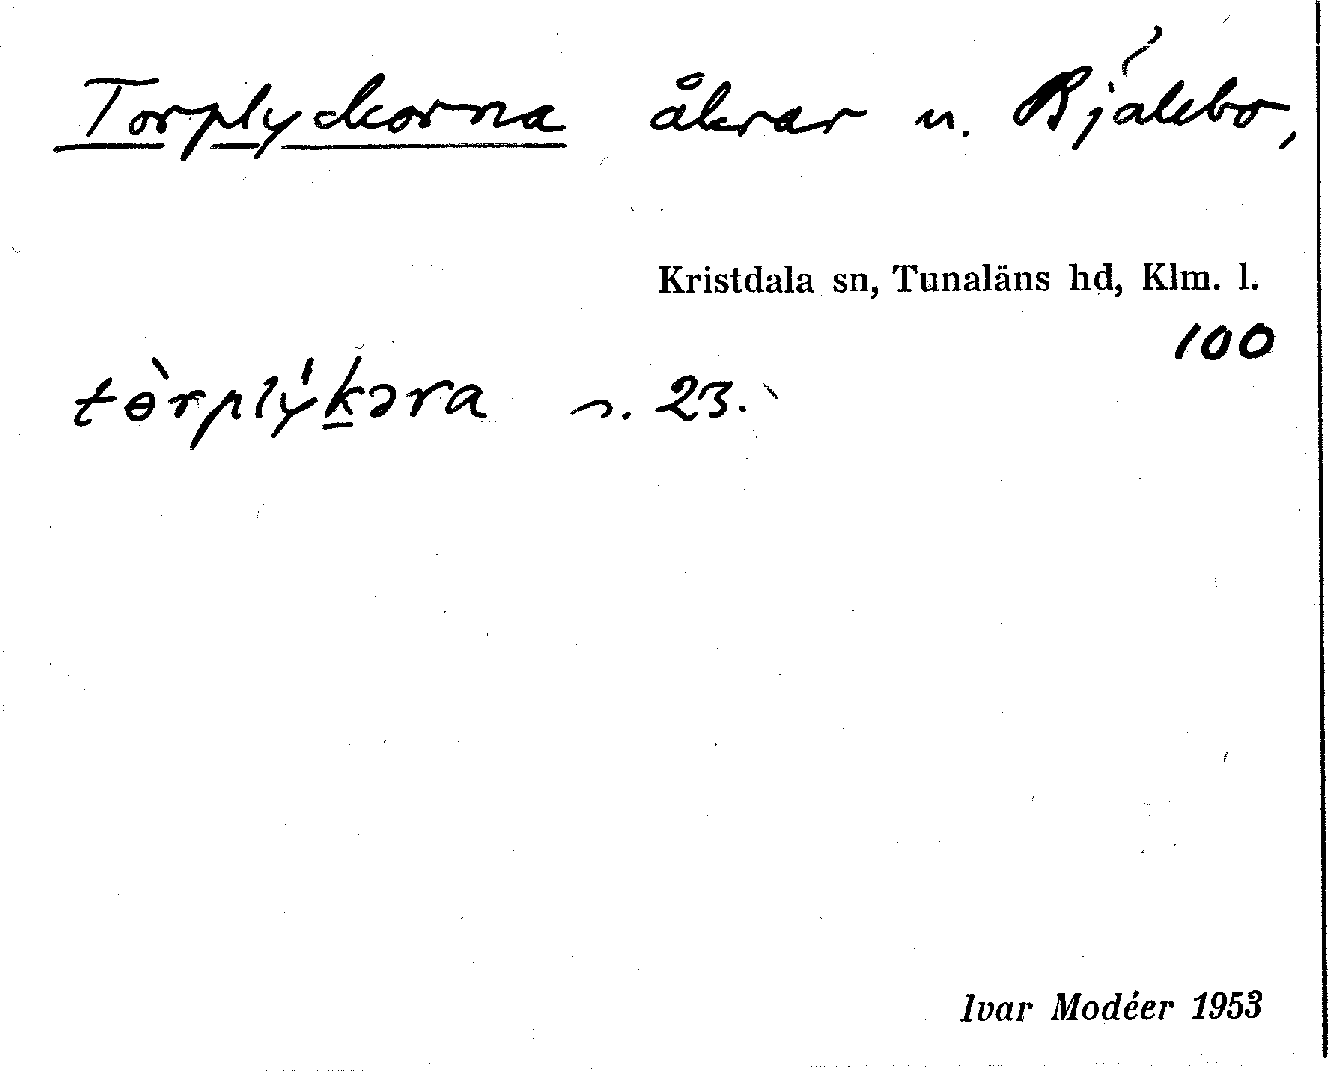 Torplyckorna åkrar n. Bjälebo,
Kristdala sn, Tunaläns hd, Klm. l.
100
tɵ̀rplýk̲əra n. 23.
Ivar Modéer 1953